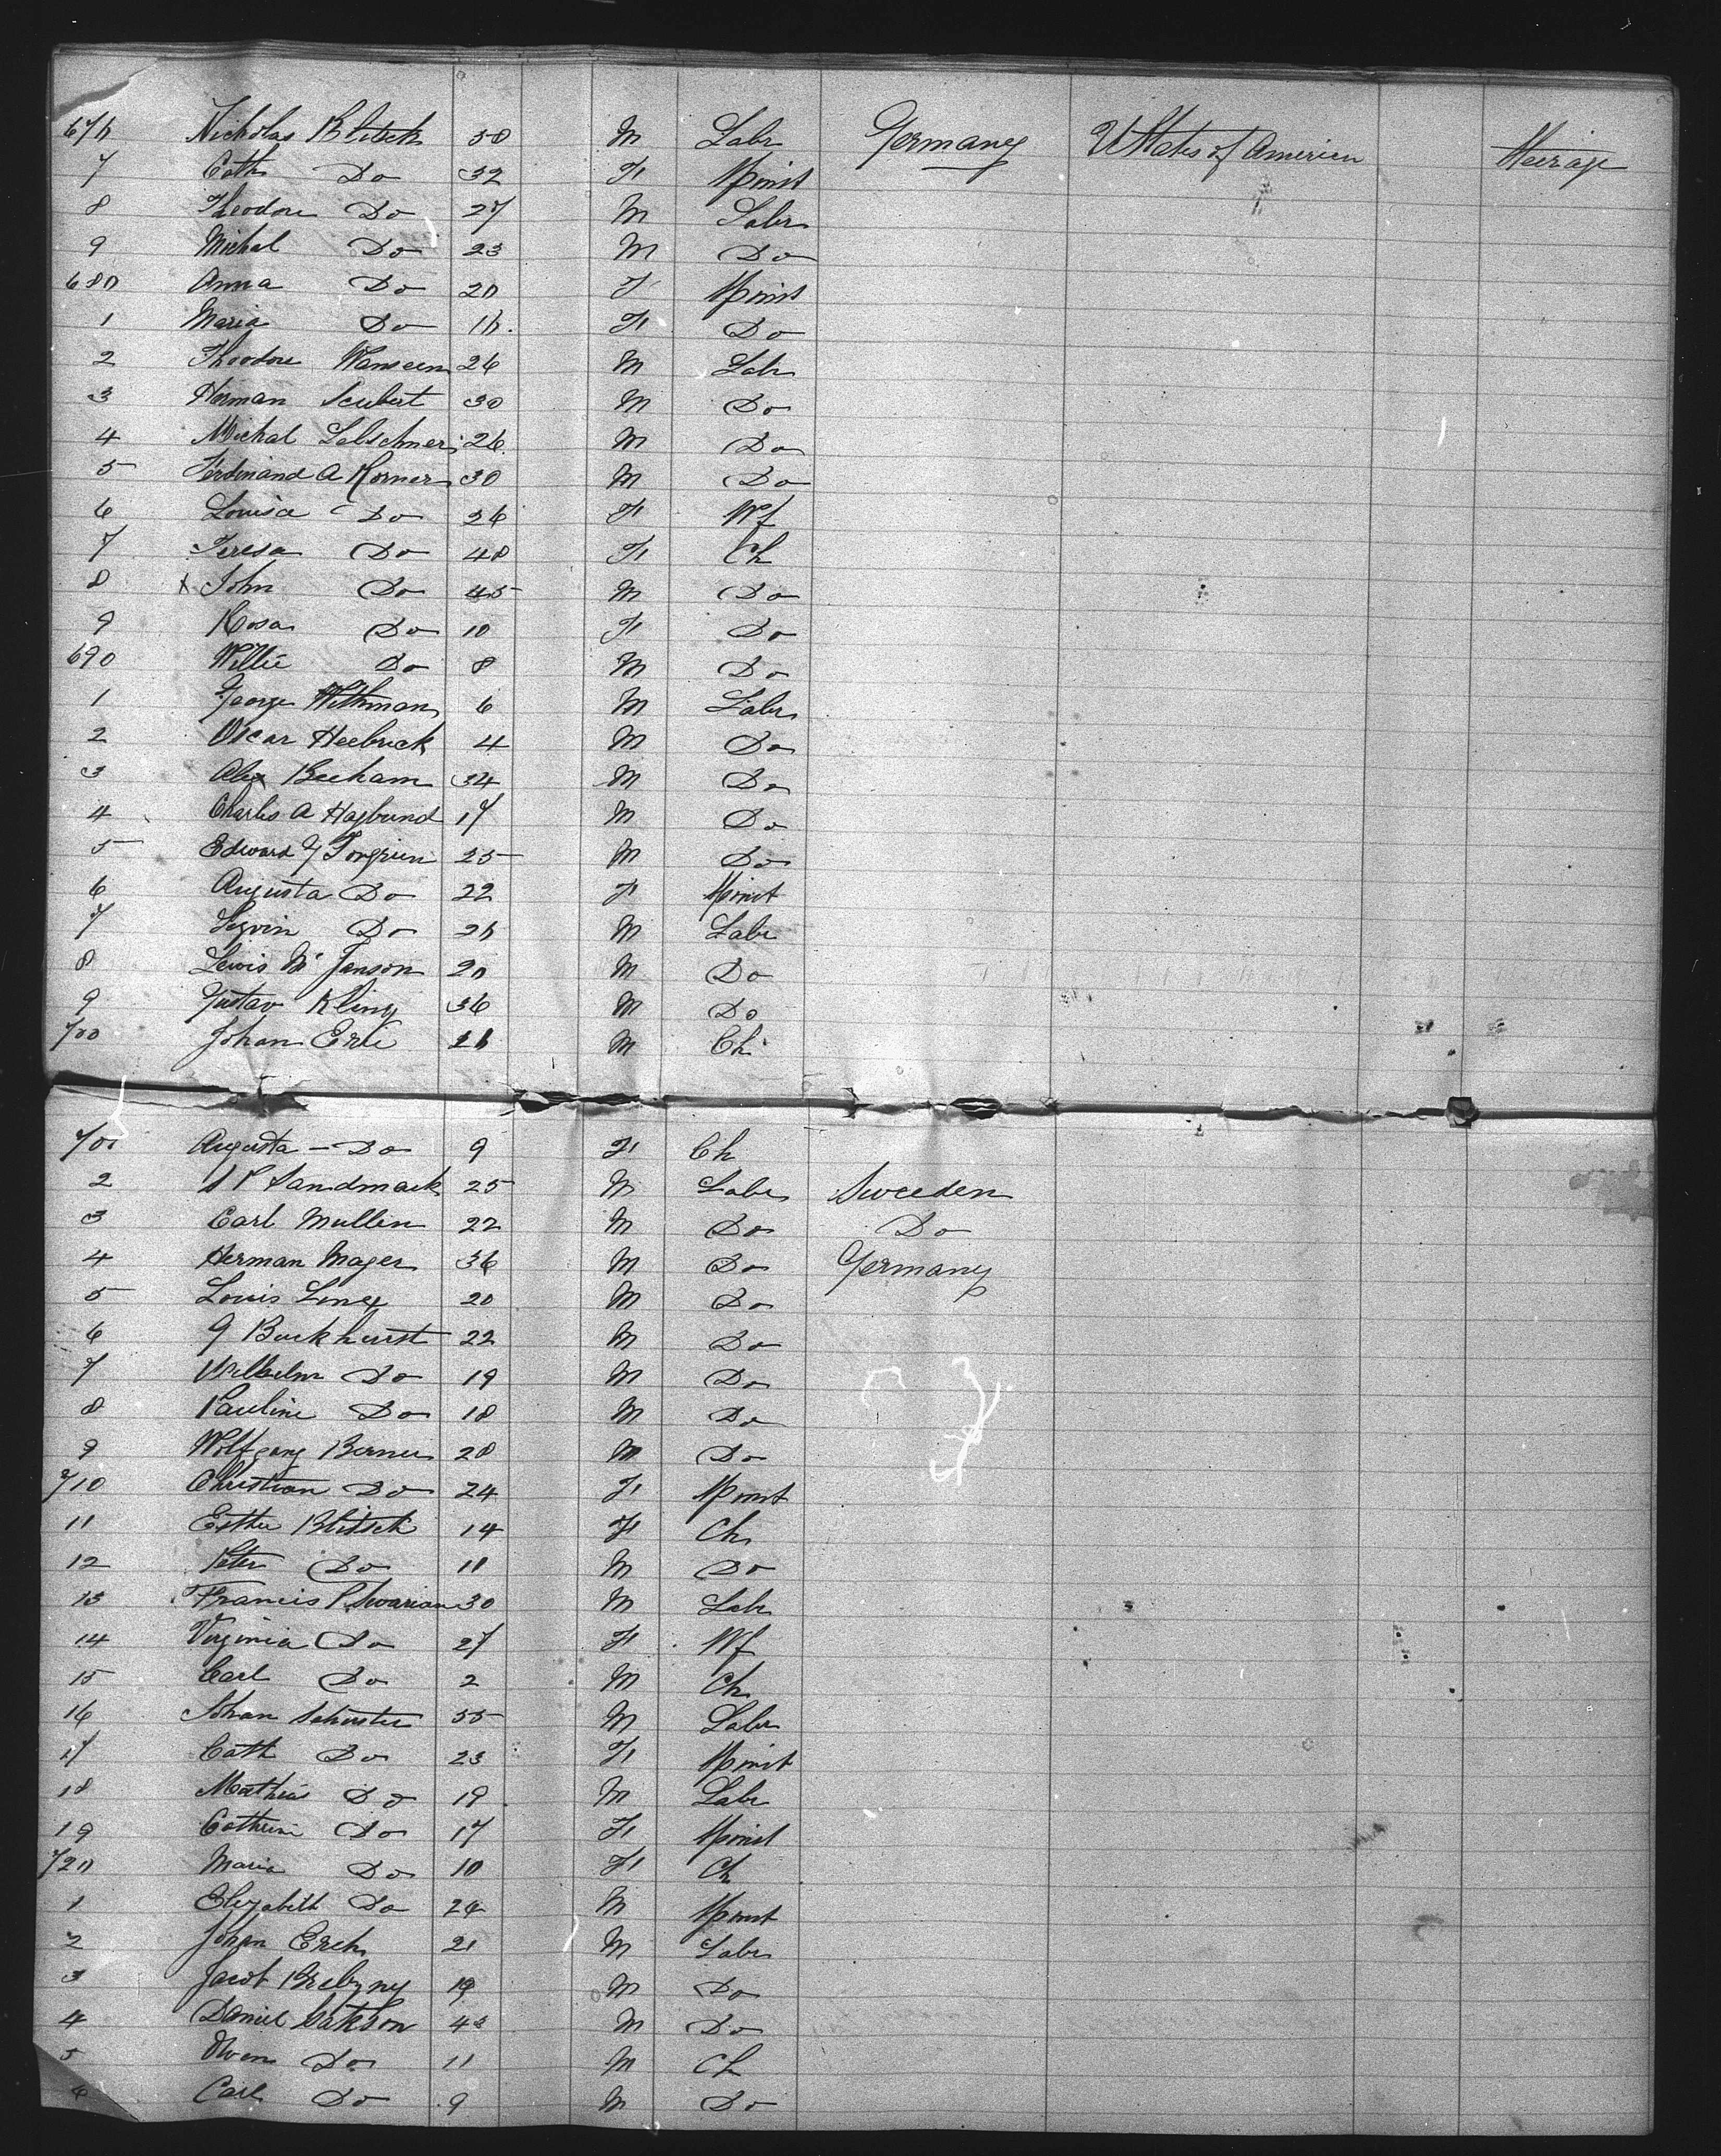 676 Nicholas Blitsch 50 M Labr Germany U States of America Steerage
7 Cath Do 32 F Spinst
8 Theodore Do 27 M Labr
9 Michal Do 23 M Do
680 Anna Do 20 F Spinst
1 Maria Do 16 F Do
2 Theodore 26 M Labr
3 Herman Seubert 30 M Do
4 Michal 26 M Do
5 Ferdinand A Korner 30 M Do
6 Louisa Do 26 F Wf
7 Teresa Do 48 F Ch
8 x John Do 45 M Do
9 Rosa Do 10 F Do
690 Willie Do 8 M Do
1 George Withman 6 M Labr
2 Oscar Heebrick 4 M Do
3 Alex Beeham 34 M Do
4 Charles A Hagbund 17 M Do
5 Edward 25 M Do
6 Augusta Do 22 F Spinst
7 Do 26 M Labr
8 Lewis M Janson 20 M Do
9 Gustav Kling 36 M Do
700 Johan Eric M Ch
701 Augusta - Do 9 F Ch
2 S P Sandmark 25 M Labr Sweeden
3 Carl Mullin 22 M Do Do
4 Herman Mager 36 M Do Germany
5 Louis 20 M Do
6 G Buckhurst 22 M Do
7 Wilhelm Do 19 M Do
8 Pauline Do 18 M Do
9 Wolfgang Berner 28 M Do
710 Christian Do 24 F Spinst
11 Esther Blitsch 14 F Ch
12 Peter Do 11 M Do
13 Francis 30 M Labr
14 Virginia Do 27 F Wf
15 Carl Do 2 M Ch
16 Johan Schuster 55 M Labr
17 Cath Do 23 F Spinst
18 Mathias Do 19 M Labr
19 Cathrin Do 17 F Spinst
720 Maria Do 10 F Ch
1 Elizabeth Do 24 M Spinst
2 Johan Erich 21 M Labr
3 Jacob 19 M Do
4 Daniel 43 M Do
5 Do 11 M Ch
6 Carl Do 9 M Do